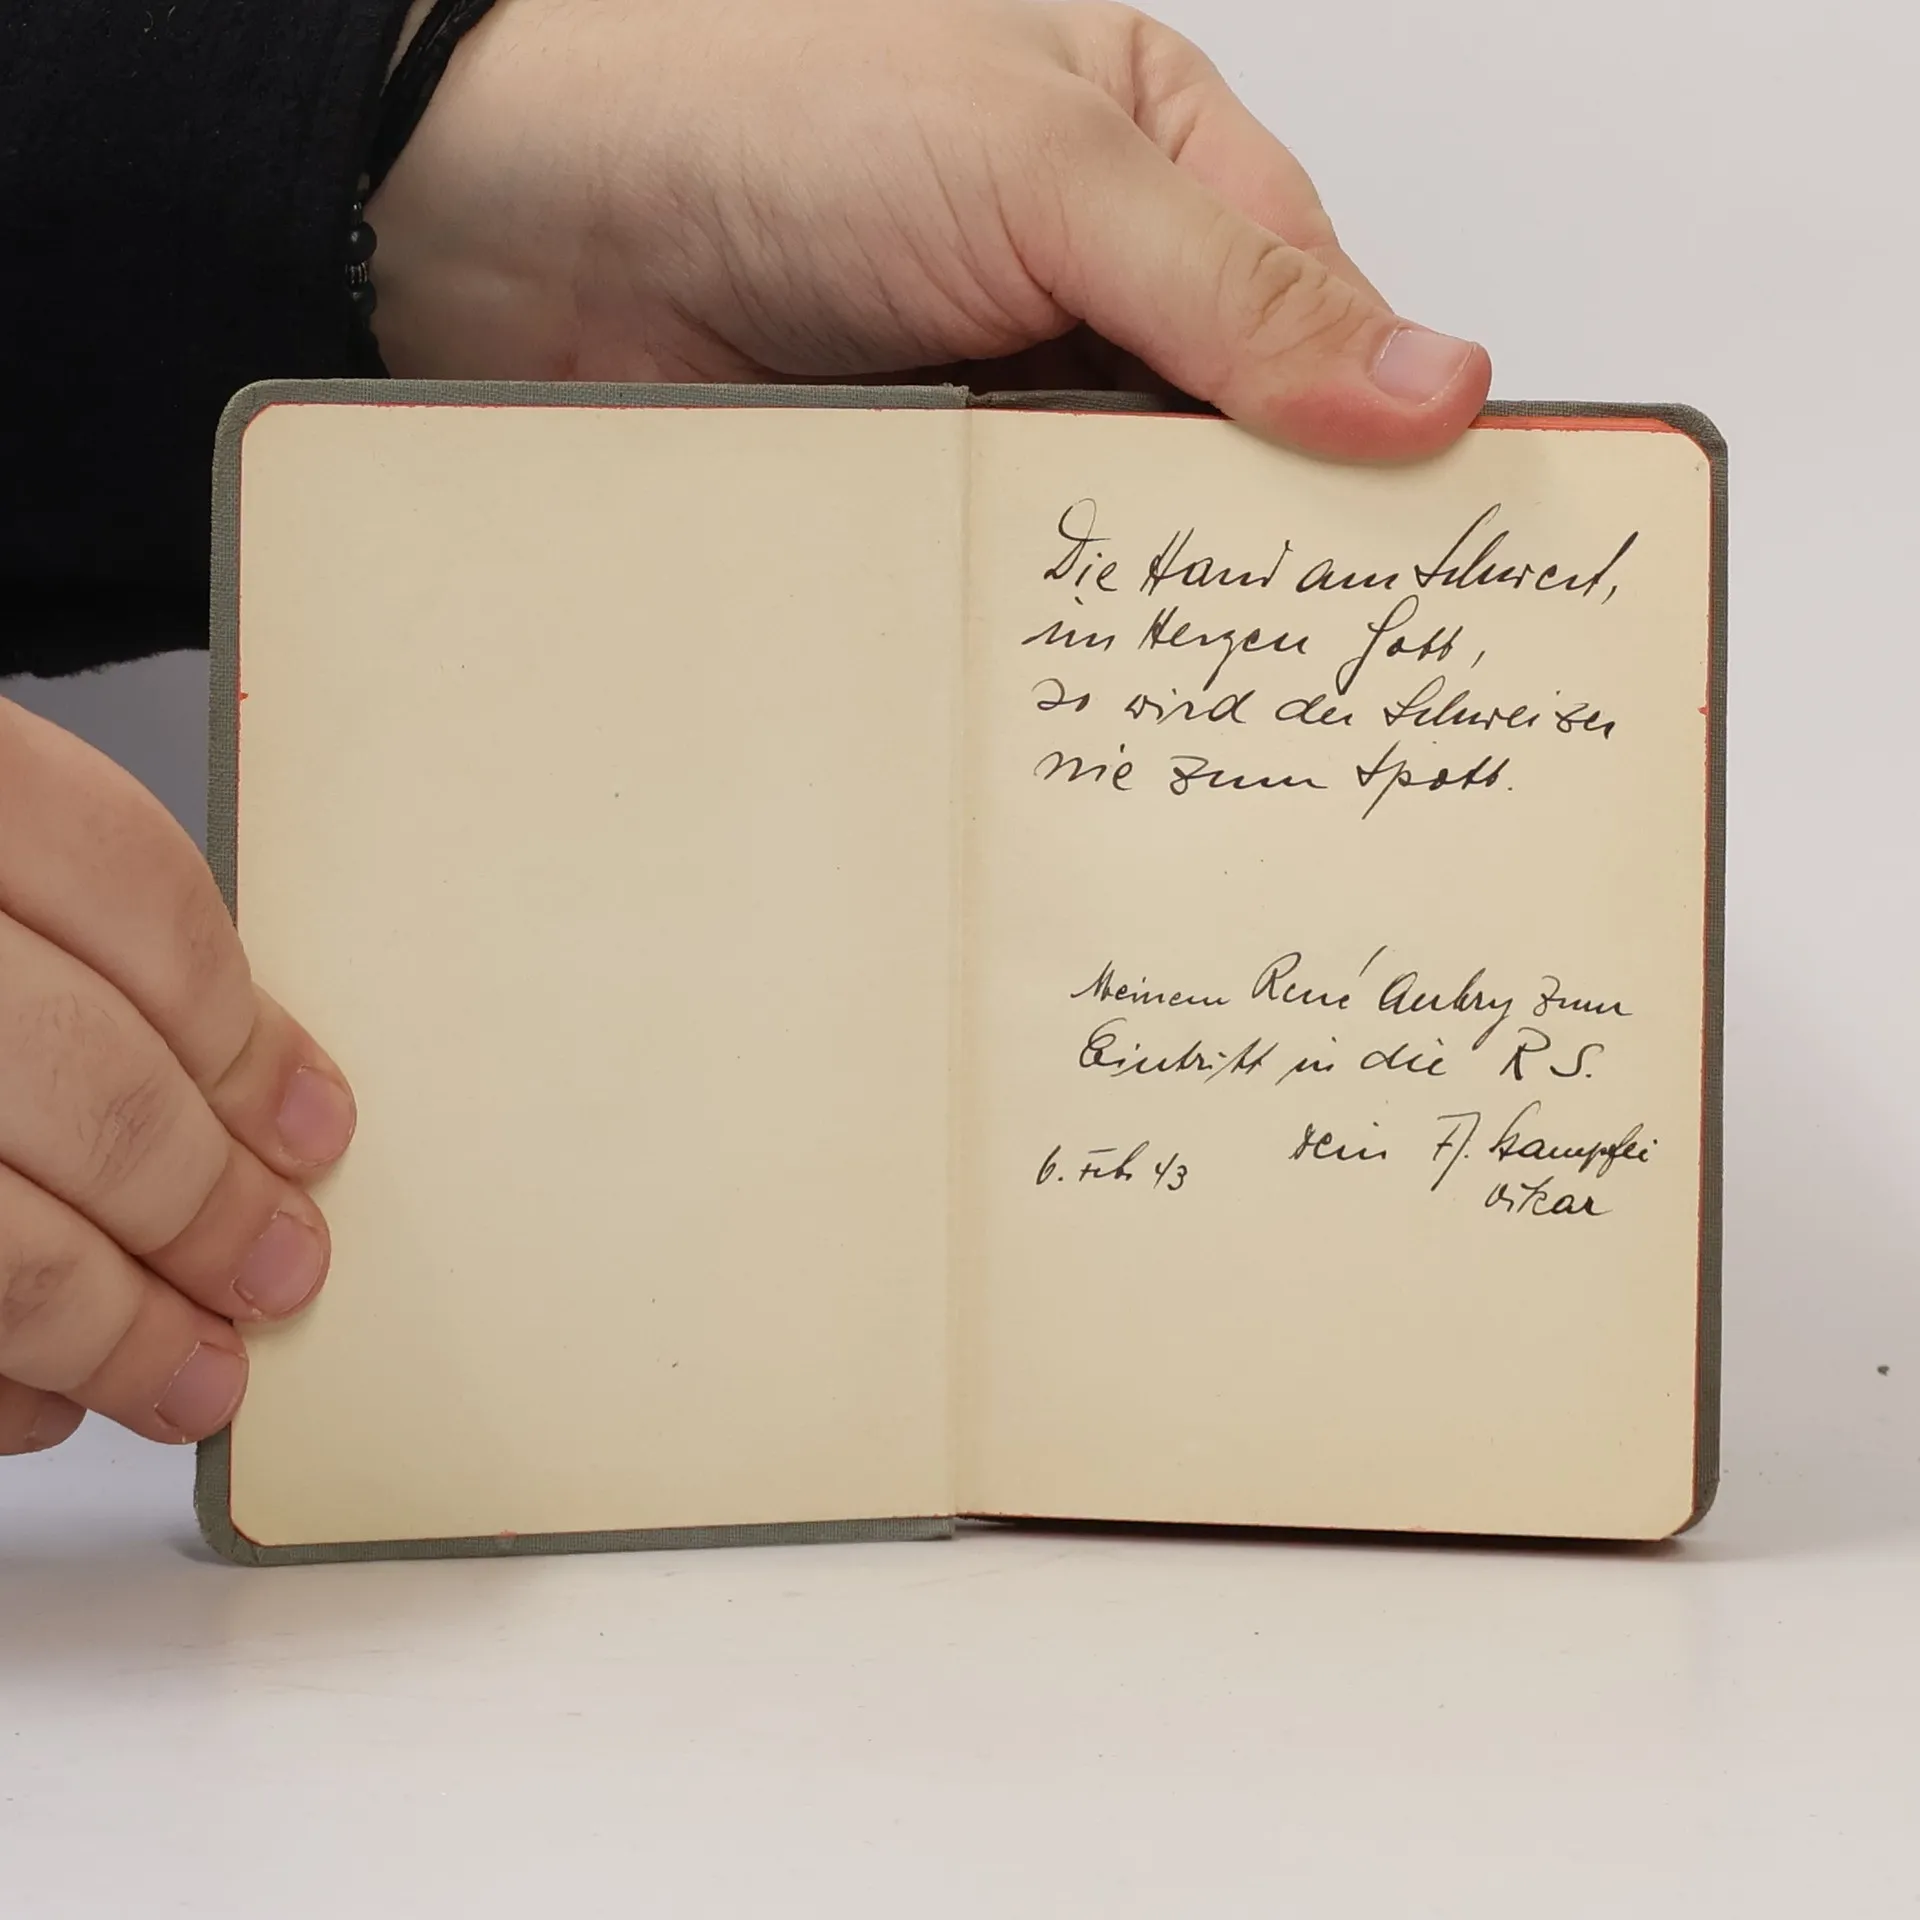 Die Hand am Schwert,
im Herzen Gott,
so wird der Schweizer
nie zum Spott.
Meinem René Aubry zum
Eintritt in die R S.
6. Feb. 43 Dein
Vikar